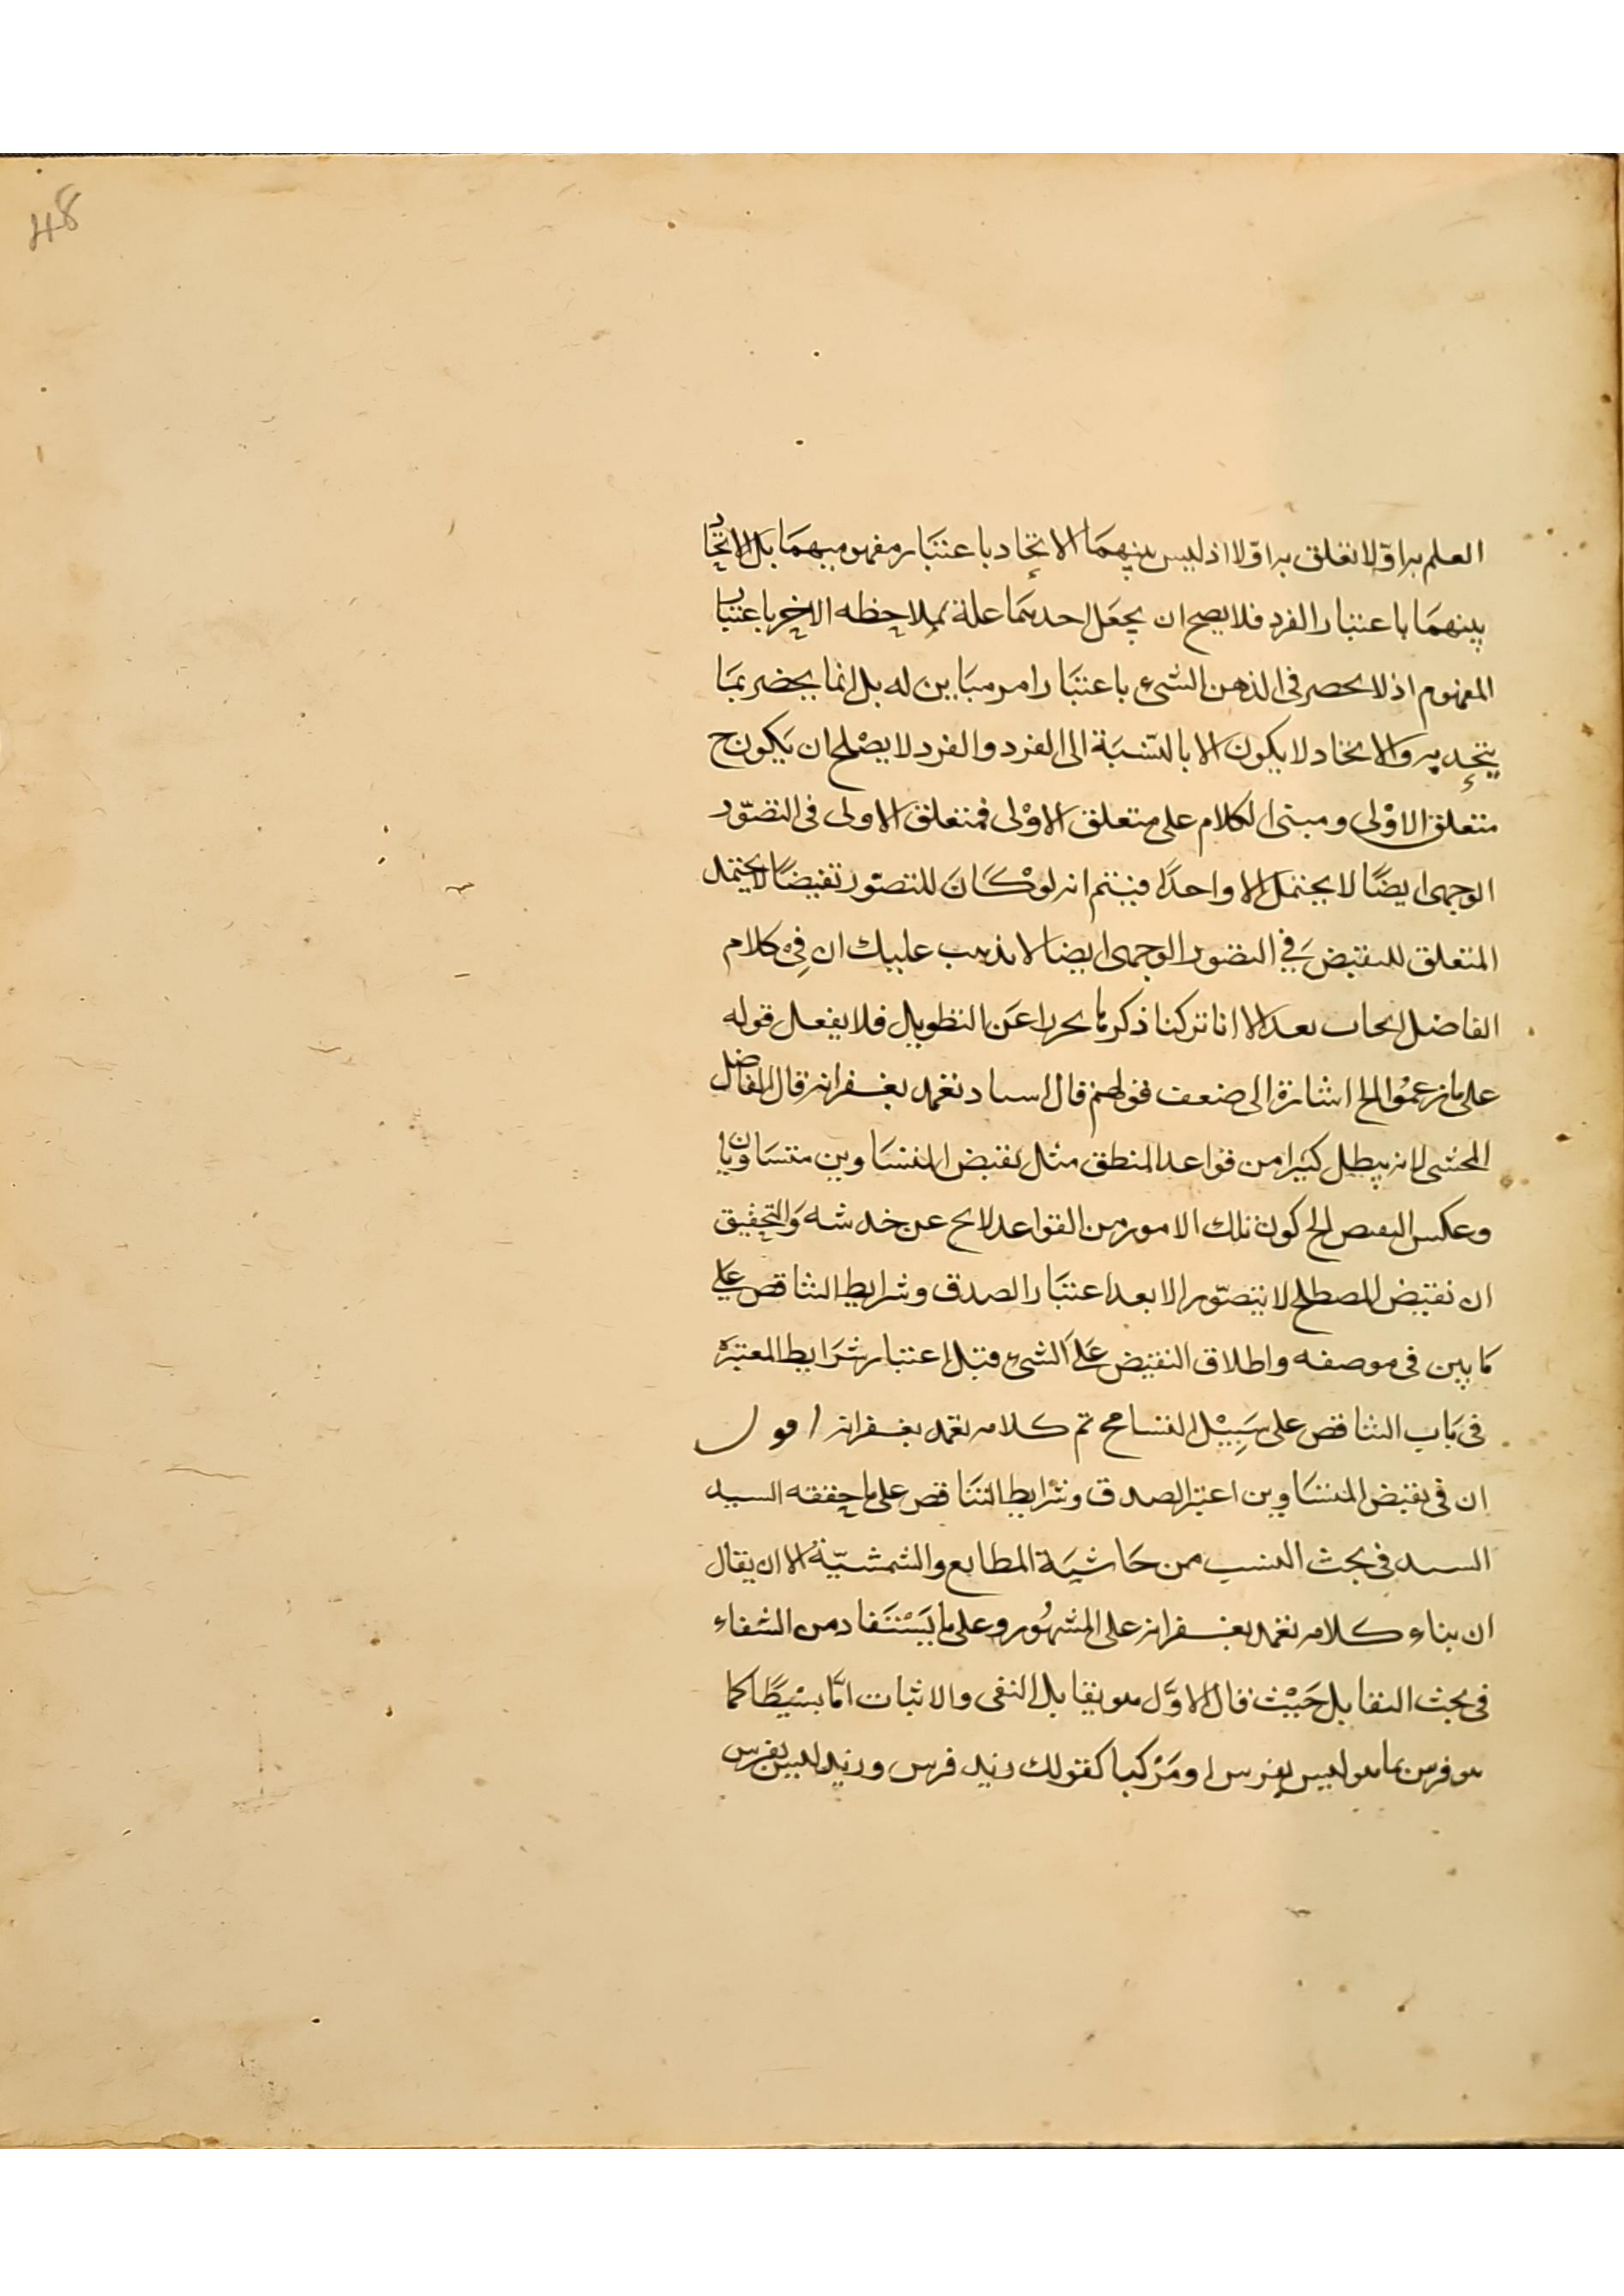 48
العلم به اوّلا تعلق به اوّلا اذ ليس بينهمَا الاتحاد باعتبَار مفهوميهمَا بل الاتحاد
بينهمَا باعتبار الفرد فلا يصح ان يجعَل احدهمَا علة لملاحظه الاخر باعتبار
المفهوم اذ لا يحصر فى الذهن الشىء باعتبَار امر مبَاين له بل انما يحضر بمَا
يتحد به والاتحاد لا يكون الا بالنسْبَة الى الفرد والفرد لا يصْلح ان يَكون ح
متعلق الاوْلى ومبنى الكلام على متعلق الاوْلى فمتعلق الاولى فى التصوّر
الوجهى ايضًا لا يحتمل الا واحدًا فيتم انه لوْ كَانَ للتصوّر نقيضًا لا يحتمله
المتعلق للنقيض فِي التصور الوجهى ايضا لا يذهب عليك ان فِى كلام
الفاضل بعد الا انا تركنا ذكرها عَن التطويل فلا يغعل قوله
على ما زعمُوا الخ اشارة الى ضعف قولهم قال اسىاد تغمد بغفرانه قال الفاضل
المحشى لانه يبطل كثيرا من قواعد المنطق مثل نقيض المتسَاوين متسَاويان
وعكس النقيض الخ كون تلك الامور من القواعد لا يخ عن خدشه وَالتحقيق
ان نقيض المصطلح لا يتصوّر الا بعد اعتبَار الصدق وشرايط التناقض على
كما بين فى موصفه واطلاق النقيض عَلَى الشىء قبل اعتبار شرَايط المعتبرة
فى بَاب التناقض على سَبِيْل التسامح تم كلامه تغمد بغفرانه اقول
ان فى نقيض المتسَاوين اعتبر الصدق وشرايط التنَاقض على ما حققه السيد
السيد فى بحث النسب من حَاشيَة المطالع والشمسّية الا ان يقال
ان بناء كلامه تغمد بغفرانه على المشهُور وعلى ما يَسْتَفاد من الشفاء
فى بحث التقابل حَيْث قال الاوّل هو تقابل النفى والاثبات امّا بسْيطًا كما
هو فرس ما هو ليس بفرس او مَرْكبا كقولك زيد فرس وزيد ليس بفرس